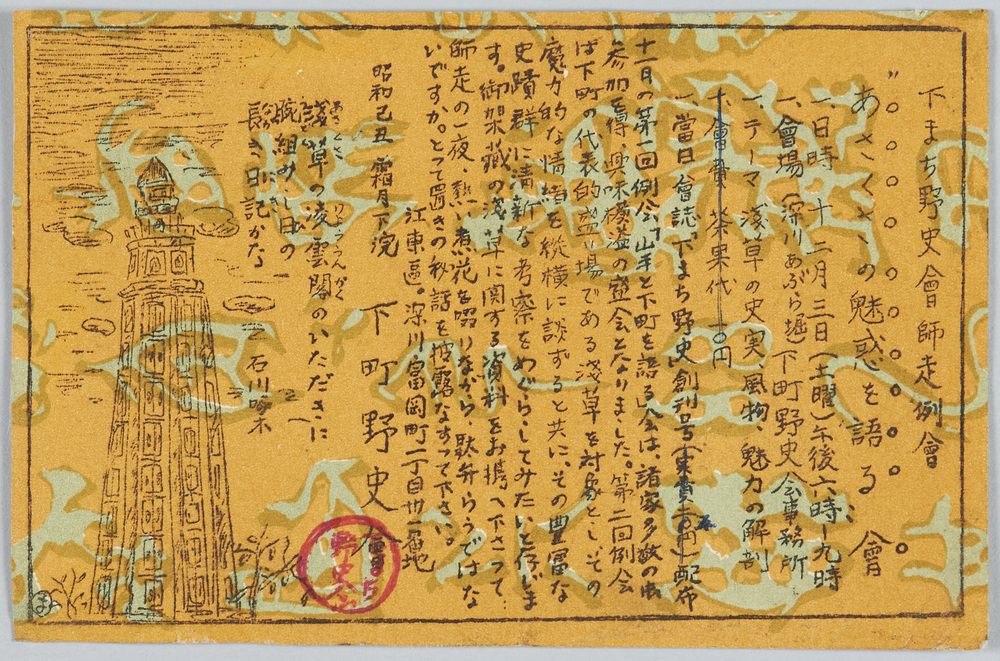 下まち野史會師走例會
〝あさくさの魅惑を語る〟會
一、日時 十二月三日(土曜)午後六時―九時
一、會場(深川あぶら堀)下町野史会事務所
一、テーマ 浅草の史実、風物、魅力の解剖
一、會費 茶果代 一〇円
一、當日、會誌「下まち野史」創刊号(実費二〇円)配布
十一月の第一回例会「山手と下町を語る」会は、諸家多数の御
参加を得、興味横溢の宴会となりました。第二回例会
は下町の代表的盛り場である浅草を対象としその
魔力的な情緒を縦横に談ずると共に、その豊富な
史蹟群に清新な考察をめぐらしてみたいと存じま
す。御架蔵の浅草に関する資料をお携へ下さつて…
師走の一夜、熱い煮花を啜りながら、駄弁らうではな
いですか。とつて置きの秘話を披露なすつて下さい。
江東區。深川富岡町一丁目廿一番地
昭和己丑 霜月下浣 下町野史會
浅草の凌雲閣のいただきに
あさくさ りょううんかく
腕組みし日の
長き日記かな
にき
石川啄木
野史会